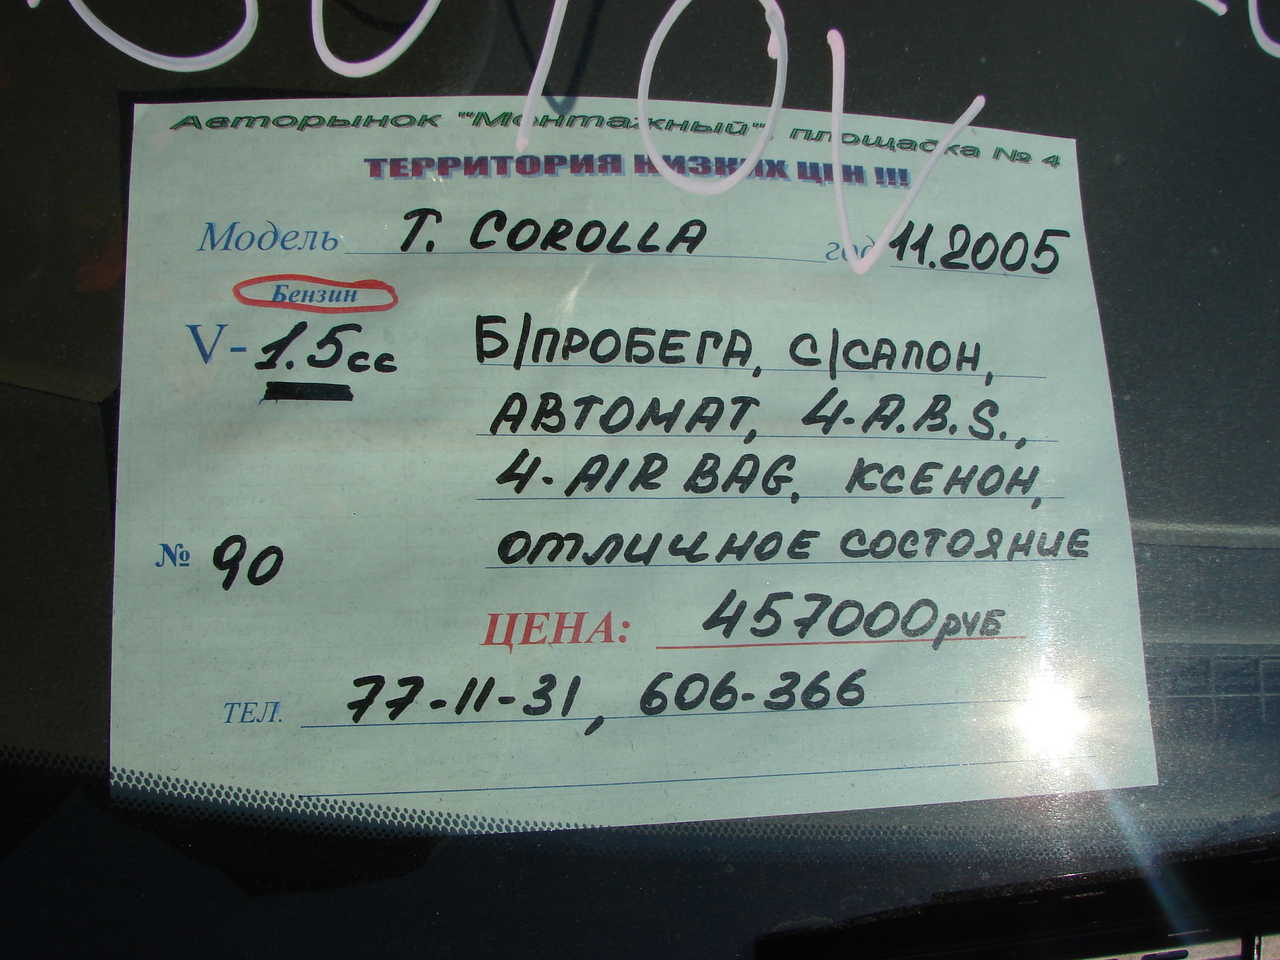 Авторынок "Монтажный", площадка № 4
ТЕРРИТОРИЯ НИЗКИХ ЦЕН !!!
Модель T. COROLLA год 11.2005
Бензин
V- 1.5cc Б/ПРОБЕГА, С/САЛОН,
АВТОМАТ, 4-A.B.S.,
4-AIR BAG, КСЕНОН,
№ 90 ОТЛИЧНОЕ СОСТОЯНИЕ
ЦЕНА: 457000 руб
ТЕЛ. 77-11-31, 606-366